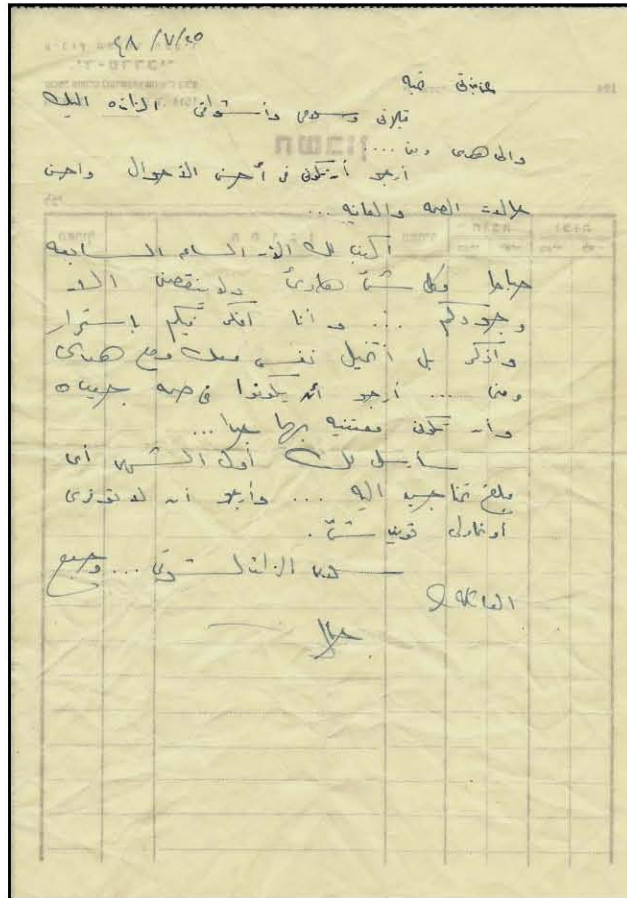 ٤٨ /٧/٢٥
عزيزتى تحيه
قبلاتى وسلامى وأشواقى الزائده اليك
والى هدى ومنى ...
أرجو أن تكونى فى أحسن الأحوال واحسن
حالات الصحه والعافيه ...
أكتب لك الآن الساعه السابعه
صباحا وكل شئ هادئ ولا ينقصنى الا
وجودكم ... وانا أفكر فيكم باستمرار
واذكر بل أتخيل نفسى معك ومع هدى
ومنى ... أرجو أن يكونوا فى صحه
وأن تكونى معتنيه بهما جدا ...
سأرسل لك أول الشهر أى
مبلغ تحتاجين اليه ... وأرجو أن لا توفرى
أو تحاولى توفير شئ .
سلامى الزائد لشوقى ... وجميع
العائله
جمال